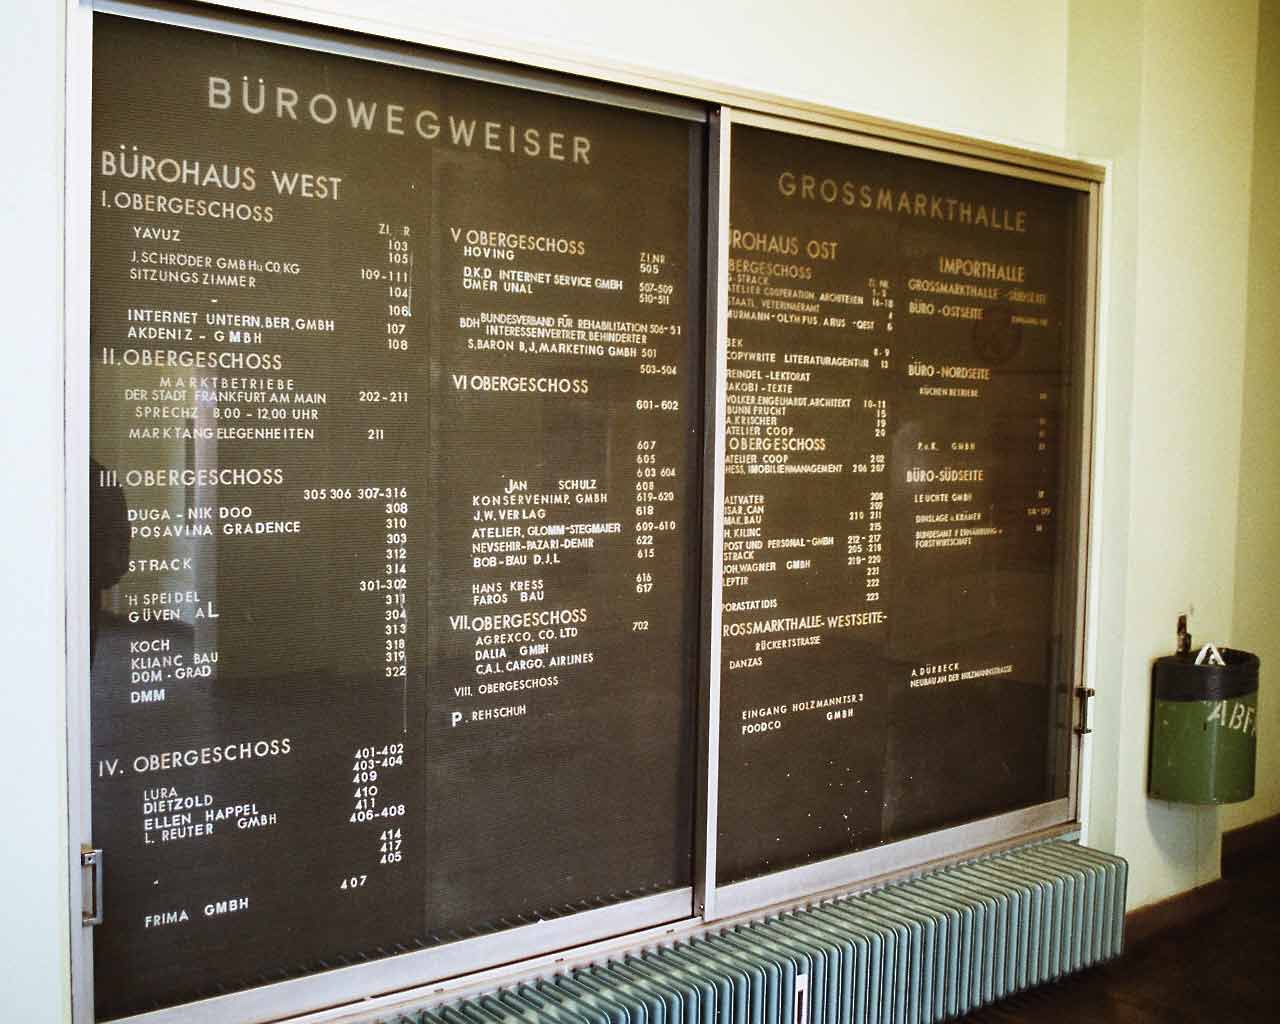 BÜROWEGWEISER
BÜROHAUS WEST
I.OBERGESCHOSS
ZI. R
YAVUZ 103
105
J.SCHRÖDER GMBHu CO,KG
SITZUNGSZIMMER 109-111
104
106
INTERNET UNTERN.BER,GMBH 107
AKDENIZ - GMBH 108
II.OBERGESCHOSS
MARKTBETRIEBE
DER STADT FRANKFURT AM MAIN 202-211
SPRECHZ 8.00 - 12.00 UHR
MARKTANGELEGENHEITEN 211
III.OBERGESCHOSS
305 306 307-316
DUGA - NIK DOO 308
POSAVINA GRADENCE 310
303
312
STRACK 314
301-302
H SPEIDEL 311
GÜVEN AL 304
313
KOCH 318
KLIANC BAU 319
DOM-GRAD 322
DMM
IV. OBERGESCHOSS 401-402
403-404
409
LURA 410
DIETZOLD 411
ELLEN HAPPEL 406-408
L. REUTER GMBH
414
417
405
407
FRIMA GMBH
V OBERGESCHOSS ZI.NR
HOVING 505
D.K.D INTERNET SERVICE GMBH 507-509
ÖMER UNAL 510-511
BDH BUNDESVERBAND FÜR REHABILITATION 506-51
INTERESSENVERTRETR.BEHINDERTER
S.BARON B,J,MARKETING GMBH 501
503-504
VI OBERGESCHOSS
601-602
607
605
603 604
JAN SCHULZ 608
KONSERVENIMP. GMBH 619-620
J.W. VERLAG 618
ATELIER, GLOMM-STEGMAIER 609-610
NEVSEHIR-PAZARI-DEMIR 622
BOB-BAU D.J.L 615
HANS KRESS 616
FAROS BAU 617
VII.OBERGESCHOSS
AGREXCO. CO. LTD 702
DALIA GMBH
C.A.L.CARGO. AIRLINES
VIII. OBERGESCHOSS
P. REHSCHUH
GROSSMARKTHALLE
ÜROHAUS OST
BERGESCHOSS ZI. NR.
G-STRACK 1-3
ATELIER COOPERATION, ARCHITEKEN 16-18
STAATL VETERINAERAMT 4
MURMANN-OLYMPUS, ARUS -QEST 6
BEK 8-9
COPYWRITE LITERATURAGENTUR 13
REINDEL-LEKTORAT
JAKOBI-TEXTE
VOLKER.ENGELHARDT,ARCHITEKT 10-11
BUNN FRUCHT 15
A.KRISCHER 19
ATELIER COOP 20
OBERGESCHOSS
ATELIER COOP 202
HESS, IMOBILIENMANAGEMENT 206 207
ALTVATER 208
ISAR,CAN 209
MAK.BAU 210 211
H. KILINC 215
POST UND PERSONAL-GMBH 212-217
STRACK 205-218
JOH.WAGNER GMBH 219-220
221
LEPTIR 222
PORASTATIDIS 223
ROSSMARKTHALLE-WESTSEITE-
RÜCKERTSTRASSE
DANZAS
EINGANG HOLZMANNTSR.3
FOODCO GMBH
IMPORTHALLE
GROSSMARKTHALLE-SÜDSEITE
BÜRO-OSTSEITE
BÜRO-NORDSEITE
KÜCHEN BETRIEBE
P.u.K. GMBH
BÜRO-SÜDSEITE
LEUCHTE GMBH
DINSLAGE u KRÄMER
BUNDESAMT F. ERNÄHRUNG u
FORSTWIRTSCHAFT
A. DÜRBECK
NEUBAU AN DER HOLZMANNSTRASSE
ABF